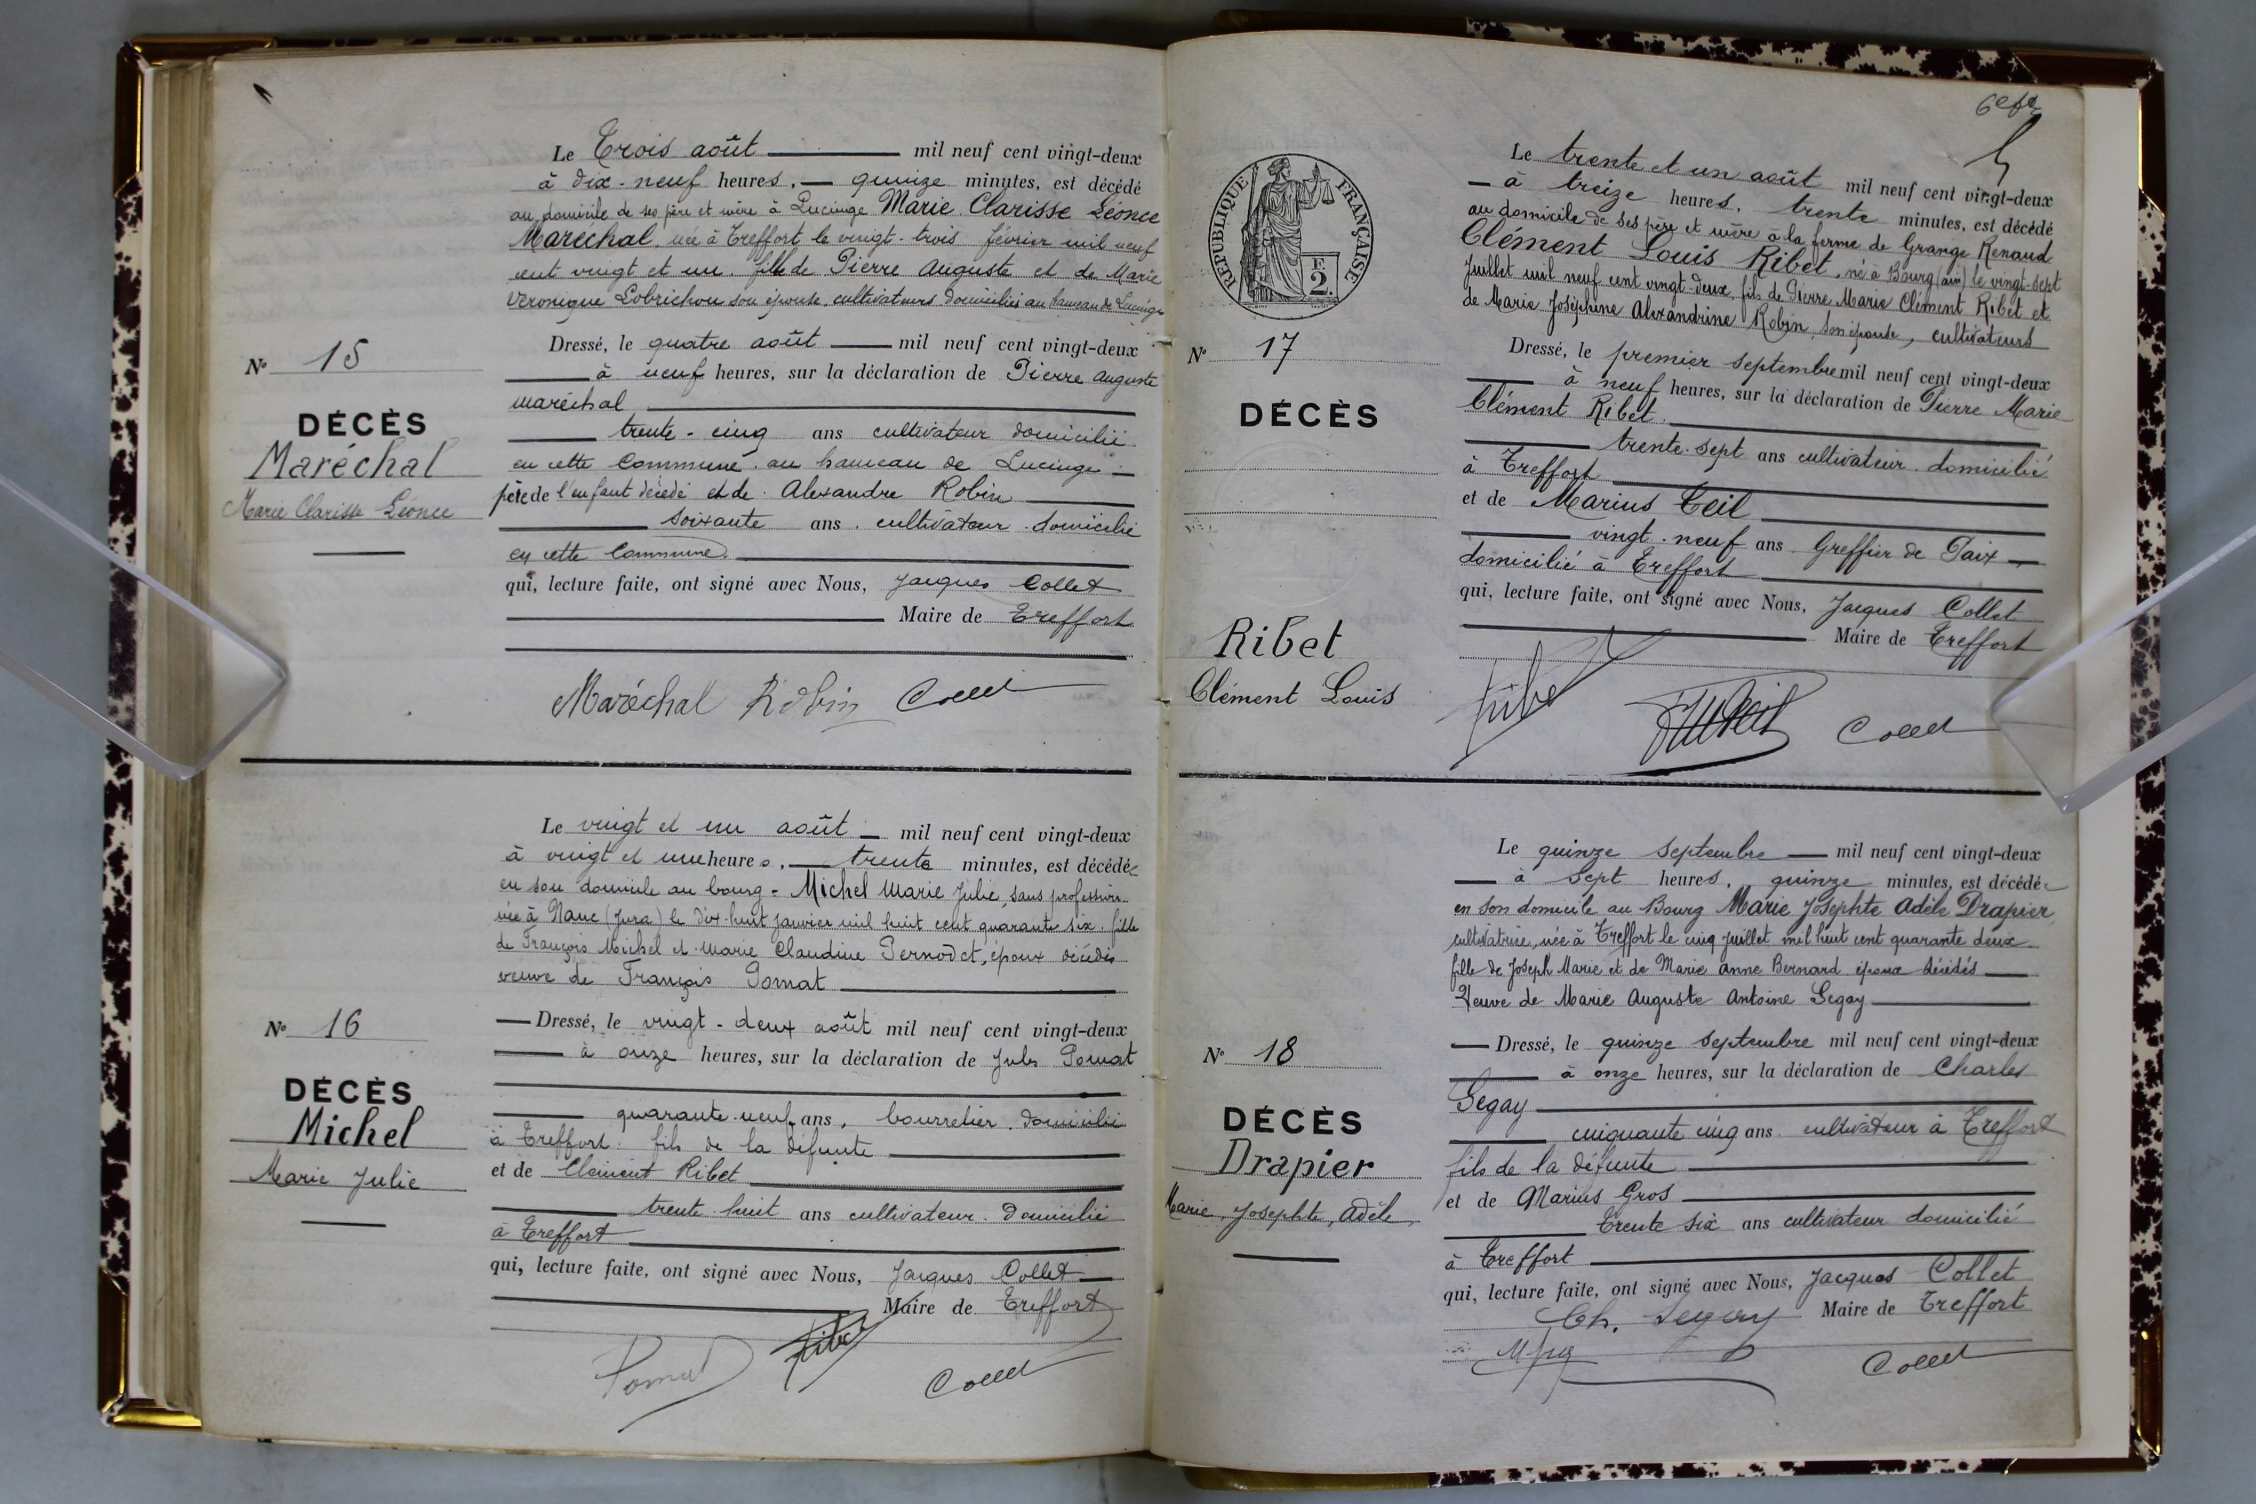 Le Trois août mil neuf cent vingt-deux
à dix-neuf heures, quinze minutes, est décédé
au domicile de ses père et mère à Lucinge Marie Clarisse Léonce
Maréchal née à Treffort le vingt-trois février mil neuf
cent vingt et un. fille de Pierre Auguste et de Marie
Veronique Lobrichon son épouse, cultivateurs domiciliés au hameau de Lucinge
Dressé, le quatre août mil neuf cent vingt-deux
à neuf heures, sur la déclaration de Pierre Auguste
Maréchal
trente-cinq ans cultivateur domicilié
en cette Commune au hameau de Lucinge
père de l'enfant décédé et de Alexandre Robin
soixante ans. cultivateur domicilié
en cette Commune.
qui, lecture faite, ont signé avec Nous, Jacques Collet
Maire de Treffort
N° 15
DÉCÈS
Maréchal
Marie Clarisse Léonce
Maréchal Robin Collet
Le vingt et un août mil neuf cent vingt-deux
à vingt et une heures, trente minutes, est décédée
en son domicile au bourg - Michel Marie Julie, sans profession
née à Nanc (Jura) le dix-huit janvier mil huit cent quarante six. fille
de François Michel et Marie Claudine Pernodet, époux décédés
veuve de François Pomat
Dressé, le vingt-deux août mil neuf cent vingt-deux
à onze heures, sur la déclaration de Jules Pomat
quarante-neuf ans, bourrelier, domicilié
à Treffort. fils de la défunte
et de Clément Ribet
trente huit ans cultivateur. domicilié
à Treffort
qui, lecture faite, ont signé avec Nous, Jacques Collet
Maire de Treffort
N° 16
DÉCÈS
Michel
Marie Julie
Pomat Ribet
Collet
6e
RÉPUBLIQUE FRANÇAISE
F
2.
Le trente et un août mil neuf cent vingt-deux
à treize heures, trente minutes, est décédé
au domicile de ses père et mère à la ferme de Grange Renaud
Clément Louis Ribet, né à Bourg (ain) le vingt-sept
Juillet mil neuf cent vingt-deux, fils de Pierre Marie Clément Ribet et
de Marie Joséphine Alexandrine Robin, son épouse, cultivateurs
Dressé, le premier septembre mil neuf cent vingt-deux
à neuf heures, sur la déclaration de Pierre Marie
Clément Ribet.
trente-sept ans cultivateur domicilié
à Treffort
et de Marius Teil
vingt-neuf ans Greffier de Paix
domicilié à Treffort
qui, lecture faite, ont signé avec Nous, Jacques Collet
Maire de Treffort
N° 17
DÉCÈS
Ribet
Clément Louis
Ribet Teil Collet
Le quinze septembre mil neuf cent vingt-deux
à Sept heures, quinze minutes, est décédée
en son domicile au Bourg Marie Josephte Adèle Drapier,
cultivatrice, née à Treffort le cinq juillet mil huit cent quarante deux
fille de Joseph Marie et de Marie Anne Bernard époux décédés
Veuve de Marie Auguste Antoine Segay
Dressé, le quinze septembre mil neuf cent vingt-deux
à onze heures, sur la déclaration de Charles
Segay
cinquante cinq ans cultivateur à Treffort
fils de la défunte
et de Marius Gros
trente six ans cultivateur domicilié
à Treffort
qui, lecture faite, ont signé avec Nous, Jacques Collet
Maire de Treffort
N° 18
DÉCÈS
Drapier
Marie, Josephte, Adèle
Ch. Segay
Collet